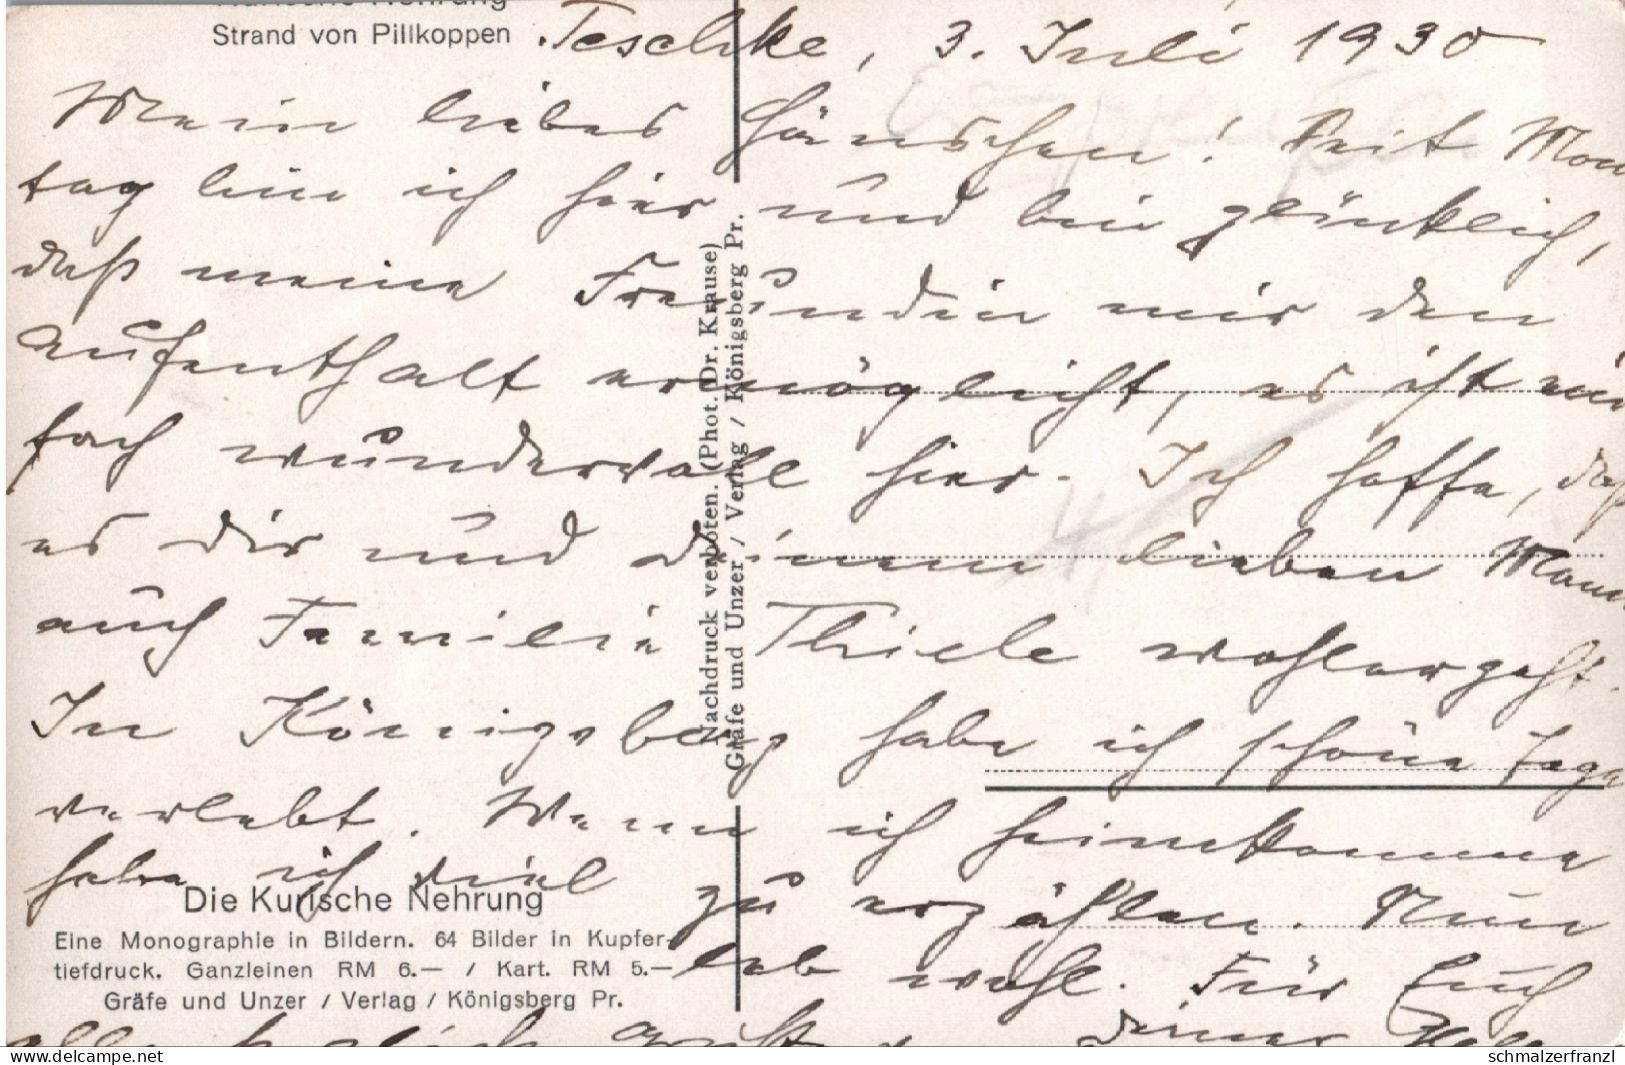 Kurische Nehrung
Strand von Pillkoppen
Teschke, 3. Juli 1930
Mein liebes Hänschen! Seit Mon
tag bin ich hier und bin glücklich,
daß meine Freundin mir den
Aufenthalt ermöglicht, es ist ein
fach wundervoll hier. Ich hoffe, daß
es dir und deinem lieben Mann
auch Familie Thiele wohlergeht.
In Königsberg habe ich schöne Tage
verlebt. Wenn ich heimkomme
habe ich viel zu erzählen. Nun
leb wohl. Für Euch
alle herzlich deine
Nachdruck verboten. (Phot. Dr. Krause)
Gräfe und Unzer / Verlag / Königsberg Pr.
Die Kurische Nehrung
Eine Monographie in Bildern. 64 Bilder in Kupfer-
tiefdruck. Ganzleinen RM 6.— / Kart. RM 5.—
Gräfe und Unzer / Verlag / Königsberg Pr.
www.delcampe.net
schmalzerfranzl